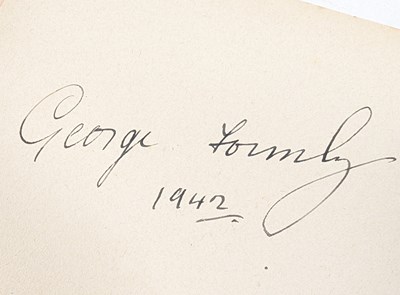 George Formby
1942